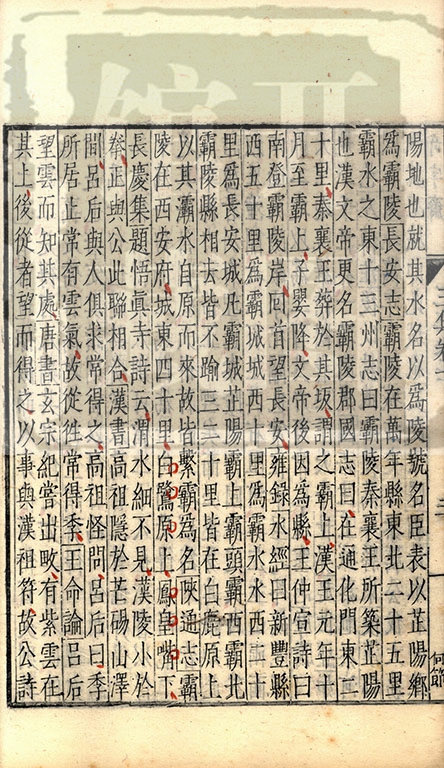 陽地也就其水名以為陵號名臣表以芷陽鄉
為霸陵長安志霸陵在萬年縣東北二十五里
霸水之東十三州志曰霸陵秦襄王所築芷陽
也漢文帝更名霸陵郡國志曰在通化門東二
十里秦襄王葬於其坂謂之霸上漢王元年十
月至霸上子嬰降文帝後因為縣王仲宣詩曰
南登霸陵岸回首望長安雍錄水經曰新豐縣
西五十里為霸城城西十里為霸水水西二十
里為長安城凡霸城芷陽霸上霸頭霸西霸北
霸陵縣相去皆不踰三二十里皆在白鹿原上
以其灞水自原而來故皆繫霸為名陜通志霸
陵在西安府城東四十里白鷺原上鳳皇嘴下
長慶集題悟真寺詩云渭水細不見漢陵小於
拳正與公此聯相合漢書高祖隱於芒碭山澤
間呂后與人俱求常得之高祖怪問呂后曰季
所居止常有雲氣故從往常得季王命論呂后
望雲而知其處唐書玄宗紀嘗出畋有紫雲在
其上後從者望而得之以事與漢祖符故公詩
何節